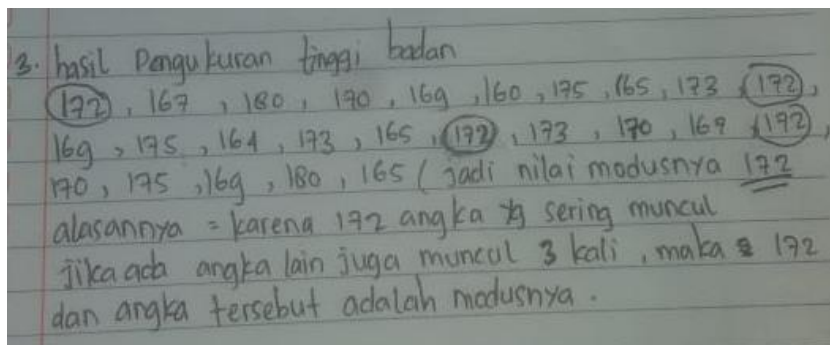 3. hasil Pengukuran tinggi badan
172, 167, 180, 170, 169, 160, 175, 165, 173, 172,
169, 175, 164, 173, 165, 172, 173, 170, 169, 172,
170, 175, 169, 180, 165 (jadi nilai modusnya 172
alasannya = karena 172 angka yg sering muncul
jika ada angka lain juga muncul 3 kali, maka 172
dan angka tersebut adalah modusnya.